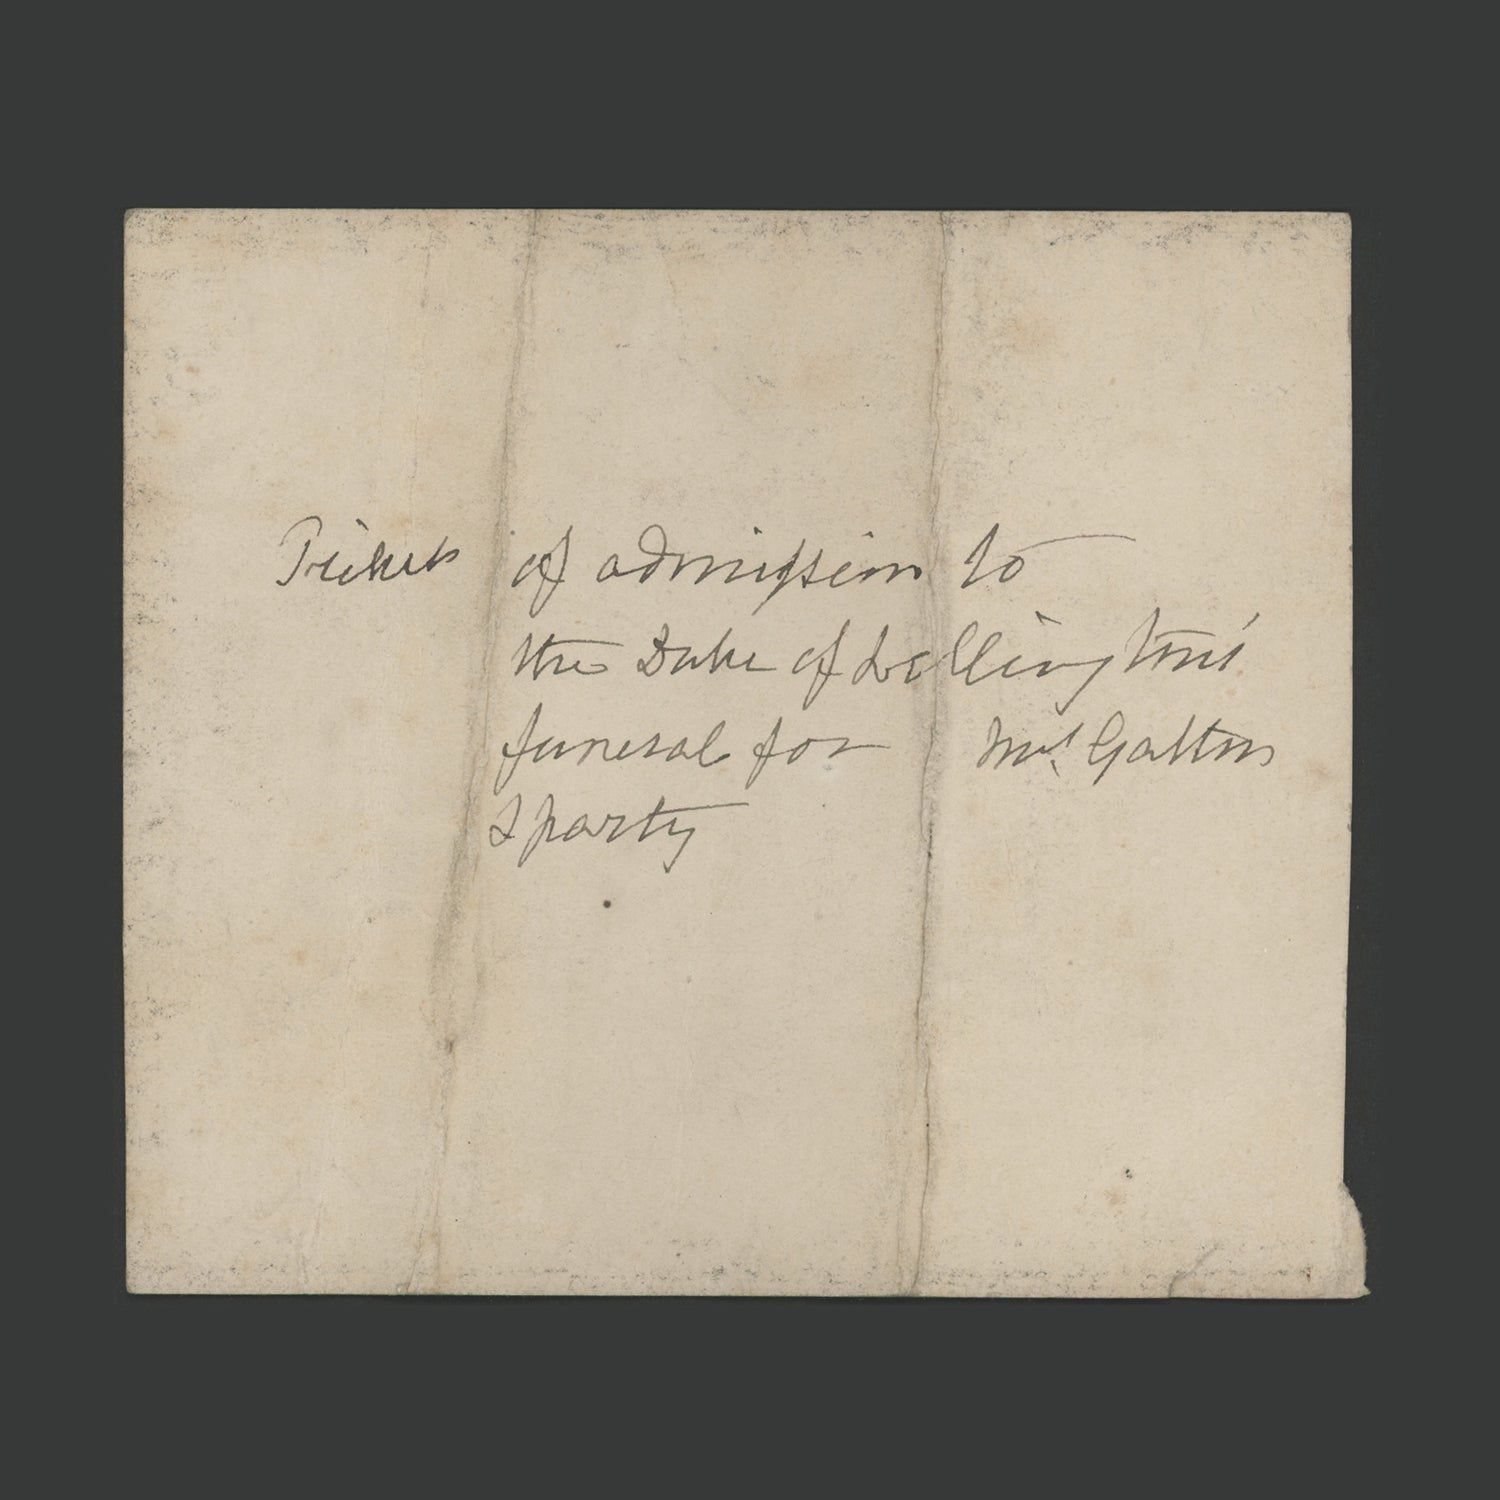 Tickets of admission to
the Duke of Wellington's
funeral for Mrs. Galton
& party